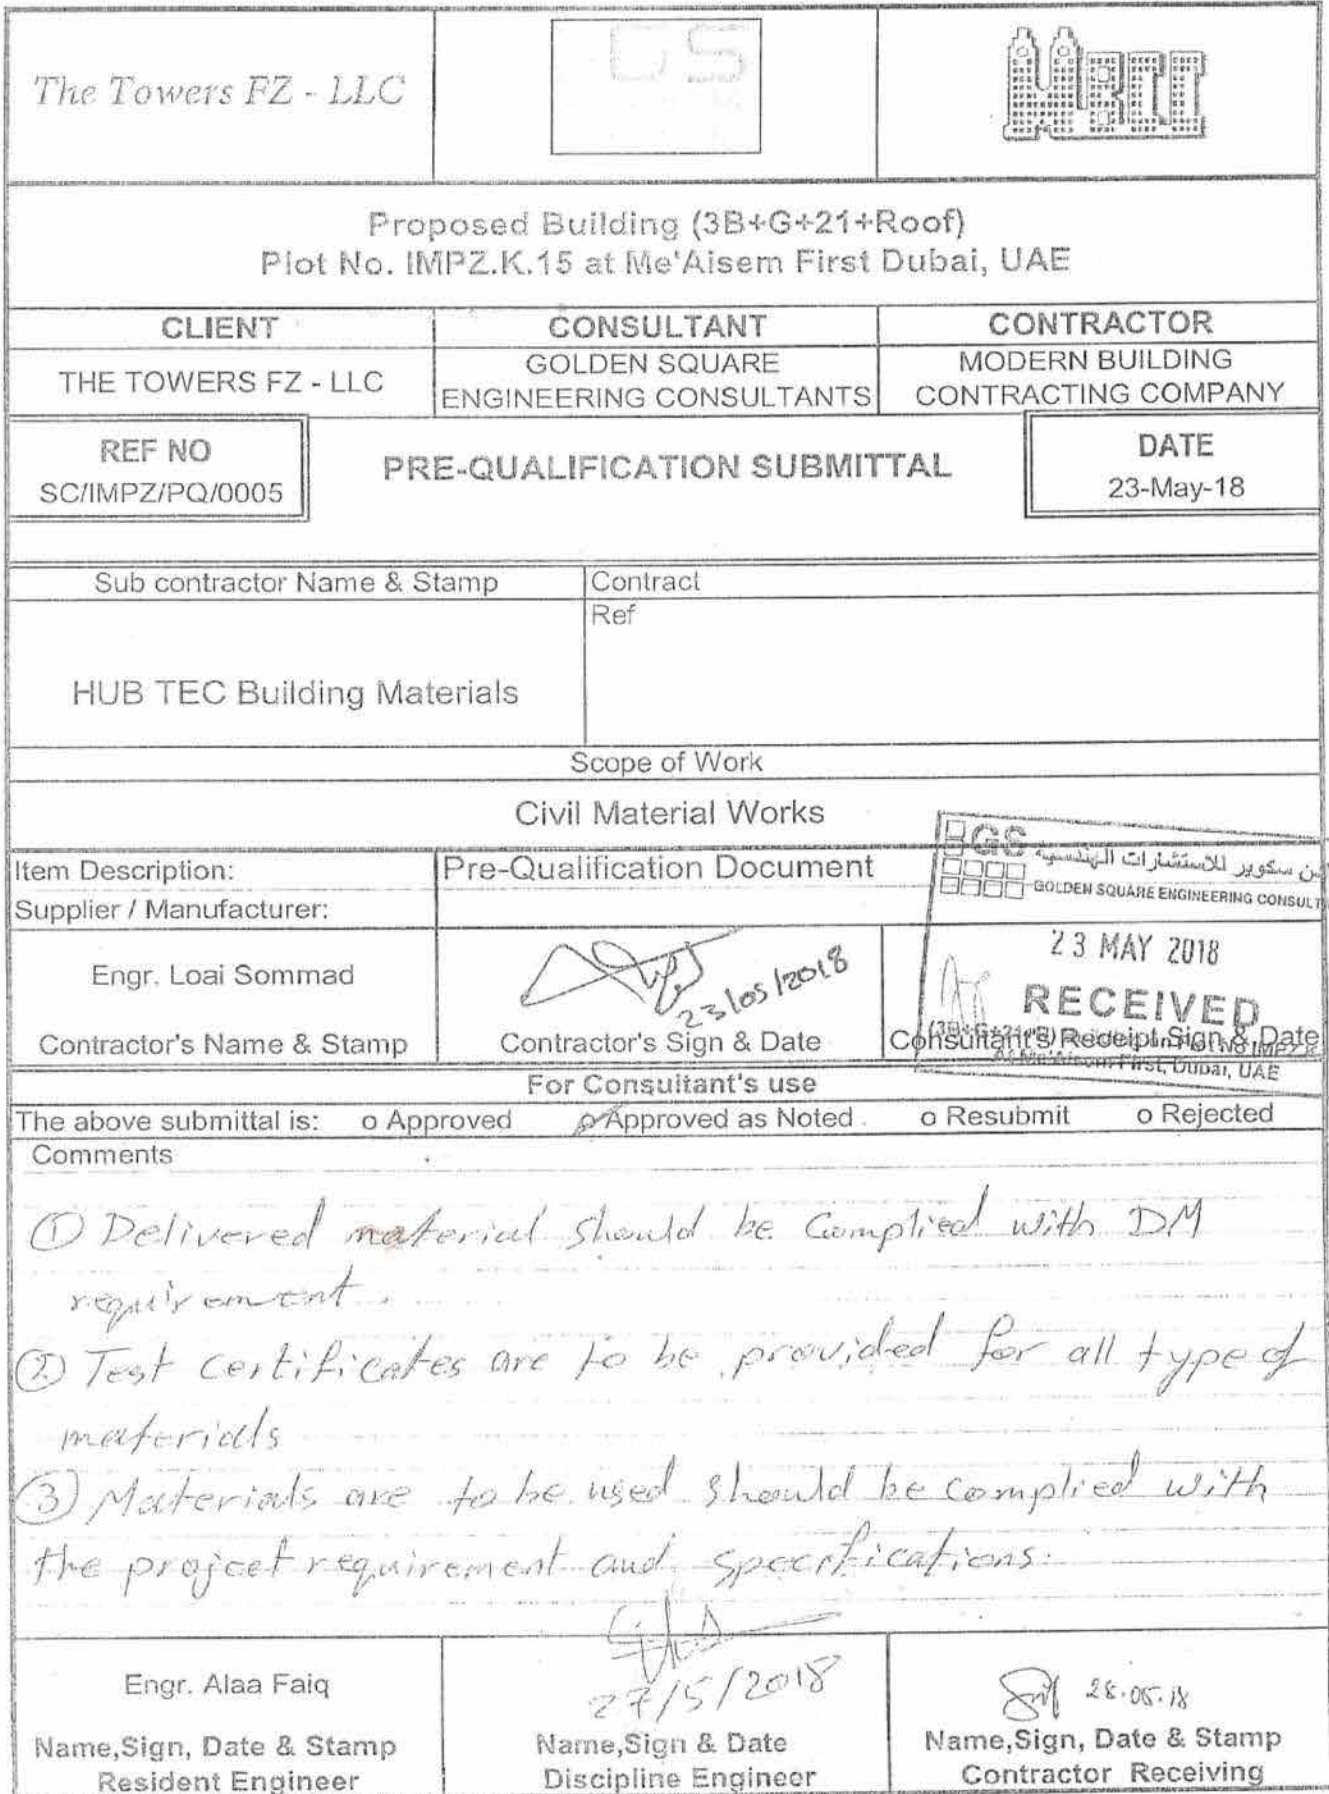 The Towers FZ - LLC
GS
MBCC
Proposed Building (3B+G+21+Roof)
Plot No. IMPZ.K.15 at Me'Aisem First Dubai, UAE
CLIENT CONSULTANT CONTRACTOR
THE TOWERS FZ - LLC
GOLDEN SQUARE
ENGINEERING CONSULTANTS
MODERN BUILDING
CONTRACTING COMPANY
REF NO
SC/IMPZ/PQ/0005
PRE-QUALIFICATION SUBMITTAL
DATE
23-May-18
Sub contractor Name & Stamp
Contract
Ref
HUB TEC Building Materials
Scope of Work
Civil Material Works
Item Description: Pre-Qualification Document
Supplier / Manufacturer:
GS
ن سكوير للاستشارات الهندسية
GOLDEN SQUARE ENGINEERING CONSULT
23 MAY 2018
RECEIVED
Me'Aisem First, Dubai, UAE
Engr. Loai Sommad
23/05/2018
Contractor's Name & Stamp
Contractor's Sign & Date
Consultant's Receipt Sign & Date
For Consultant's use
The above submittal is: o Approved o Approved as Noted o Resubmit o Rejected
Comments
① Delivered material should be Complied with DM
requirement.
② Test certificates are to be provided for all type of
materials
③ Materials are to be used should be complied with
the projcet requirement and specifications.
Engr. Alaa Faiq
27/5/2018
28.05.18
Name,Sign, Date & Stamp
Resident Engineer
Name,Sign & Date
Discipline Engineer
Name,Sign, Date & Stamp
Contractor Receiving